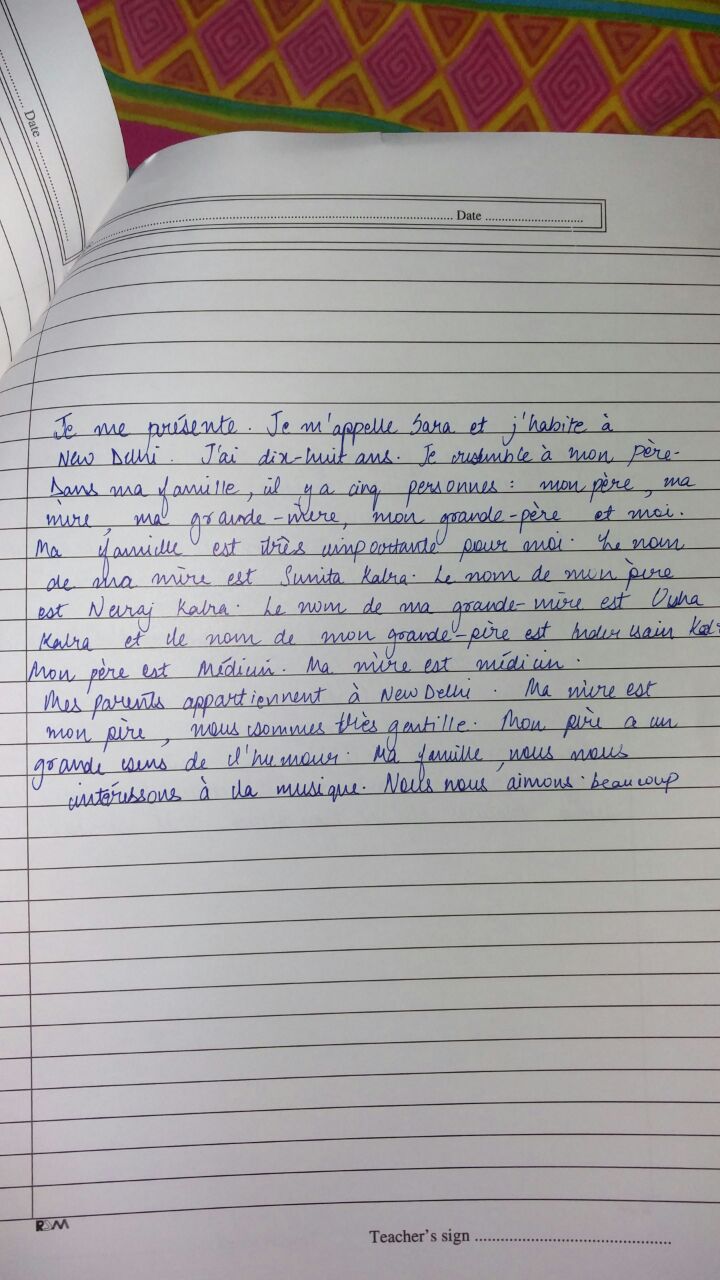 Date
Date
Je me présente. Je m'appelle Sara et j'habite à
New Delhi. J'ai dix-huit ans. Je ressemble à mon père.
Dans ma famille, il y a cinq personnes : mon père, ma
mère, ma grande-mère, mon grande-père et moi.
Ma famille est très importante pour moi. Le nom
de ma mère est Sunita Kalra. Le nom de mon père
est Neeraj Kalra. Le nom de ma grande-mère est
Kalra et le nom de mon grande-père est Inder
Mon père est Médicin. Ma mère est médicin.
Mes parents appartiennent à New Delhi. Ma mère est
mon père, nous sommes très gentille. Mon père a un
grande sens de l'humour. Ma famille, nous nous
intéressons à la musique. Nous nous aimons beaucoup
RDM
Teacher's sign